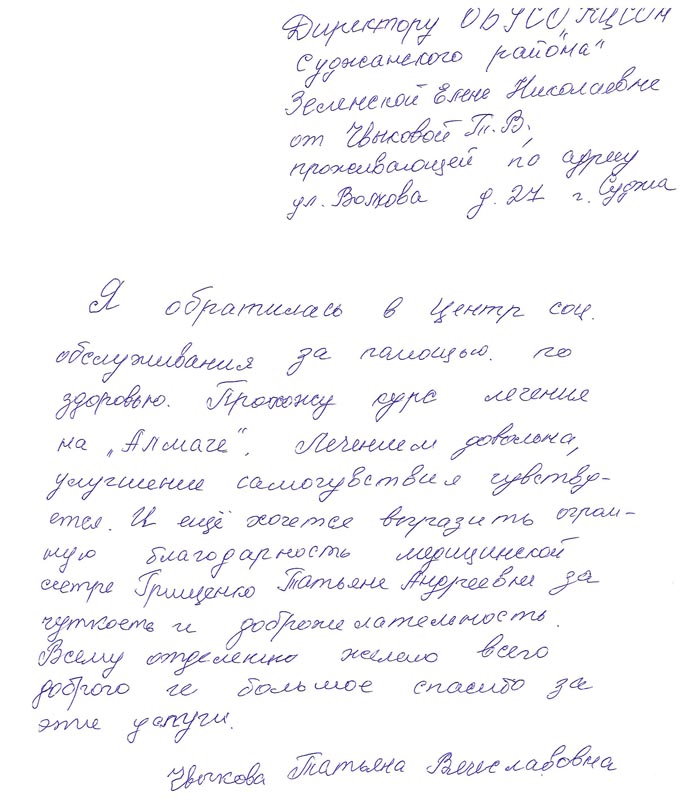 Директору ОБУСО „КЦСОН
Суджанского района“
Зеленской Елене Николаевне
от Чвыковой Т.В.,
проживающей по адресу
ул. Волкова д. 27 г. Суджа
Я обратилась в Центр соц.
обслуживания за помощью. по
здоровью. Прохожу курс лечение
на „Алмаге“. Лечением довольна,
улучшение самочувствия чувству-
ется. И ещё хочется выразить огром-
ную благодарность медицинской
сестре Грищенко Татьяне Андреевне за
чуткость и доброжелательность.
Всему отделению желаю всего
доброго и большое спасибо за
эти услуги.
Чвыкова Татьяна Вячеславовна